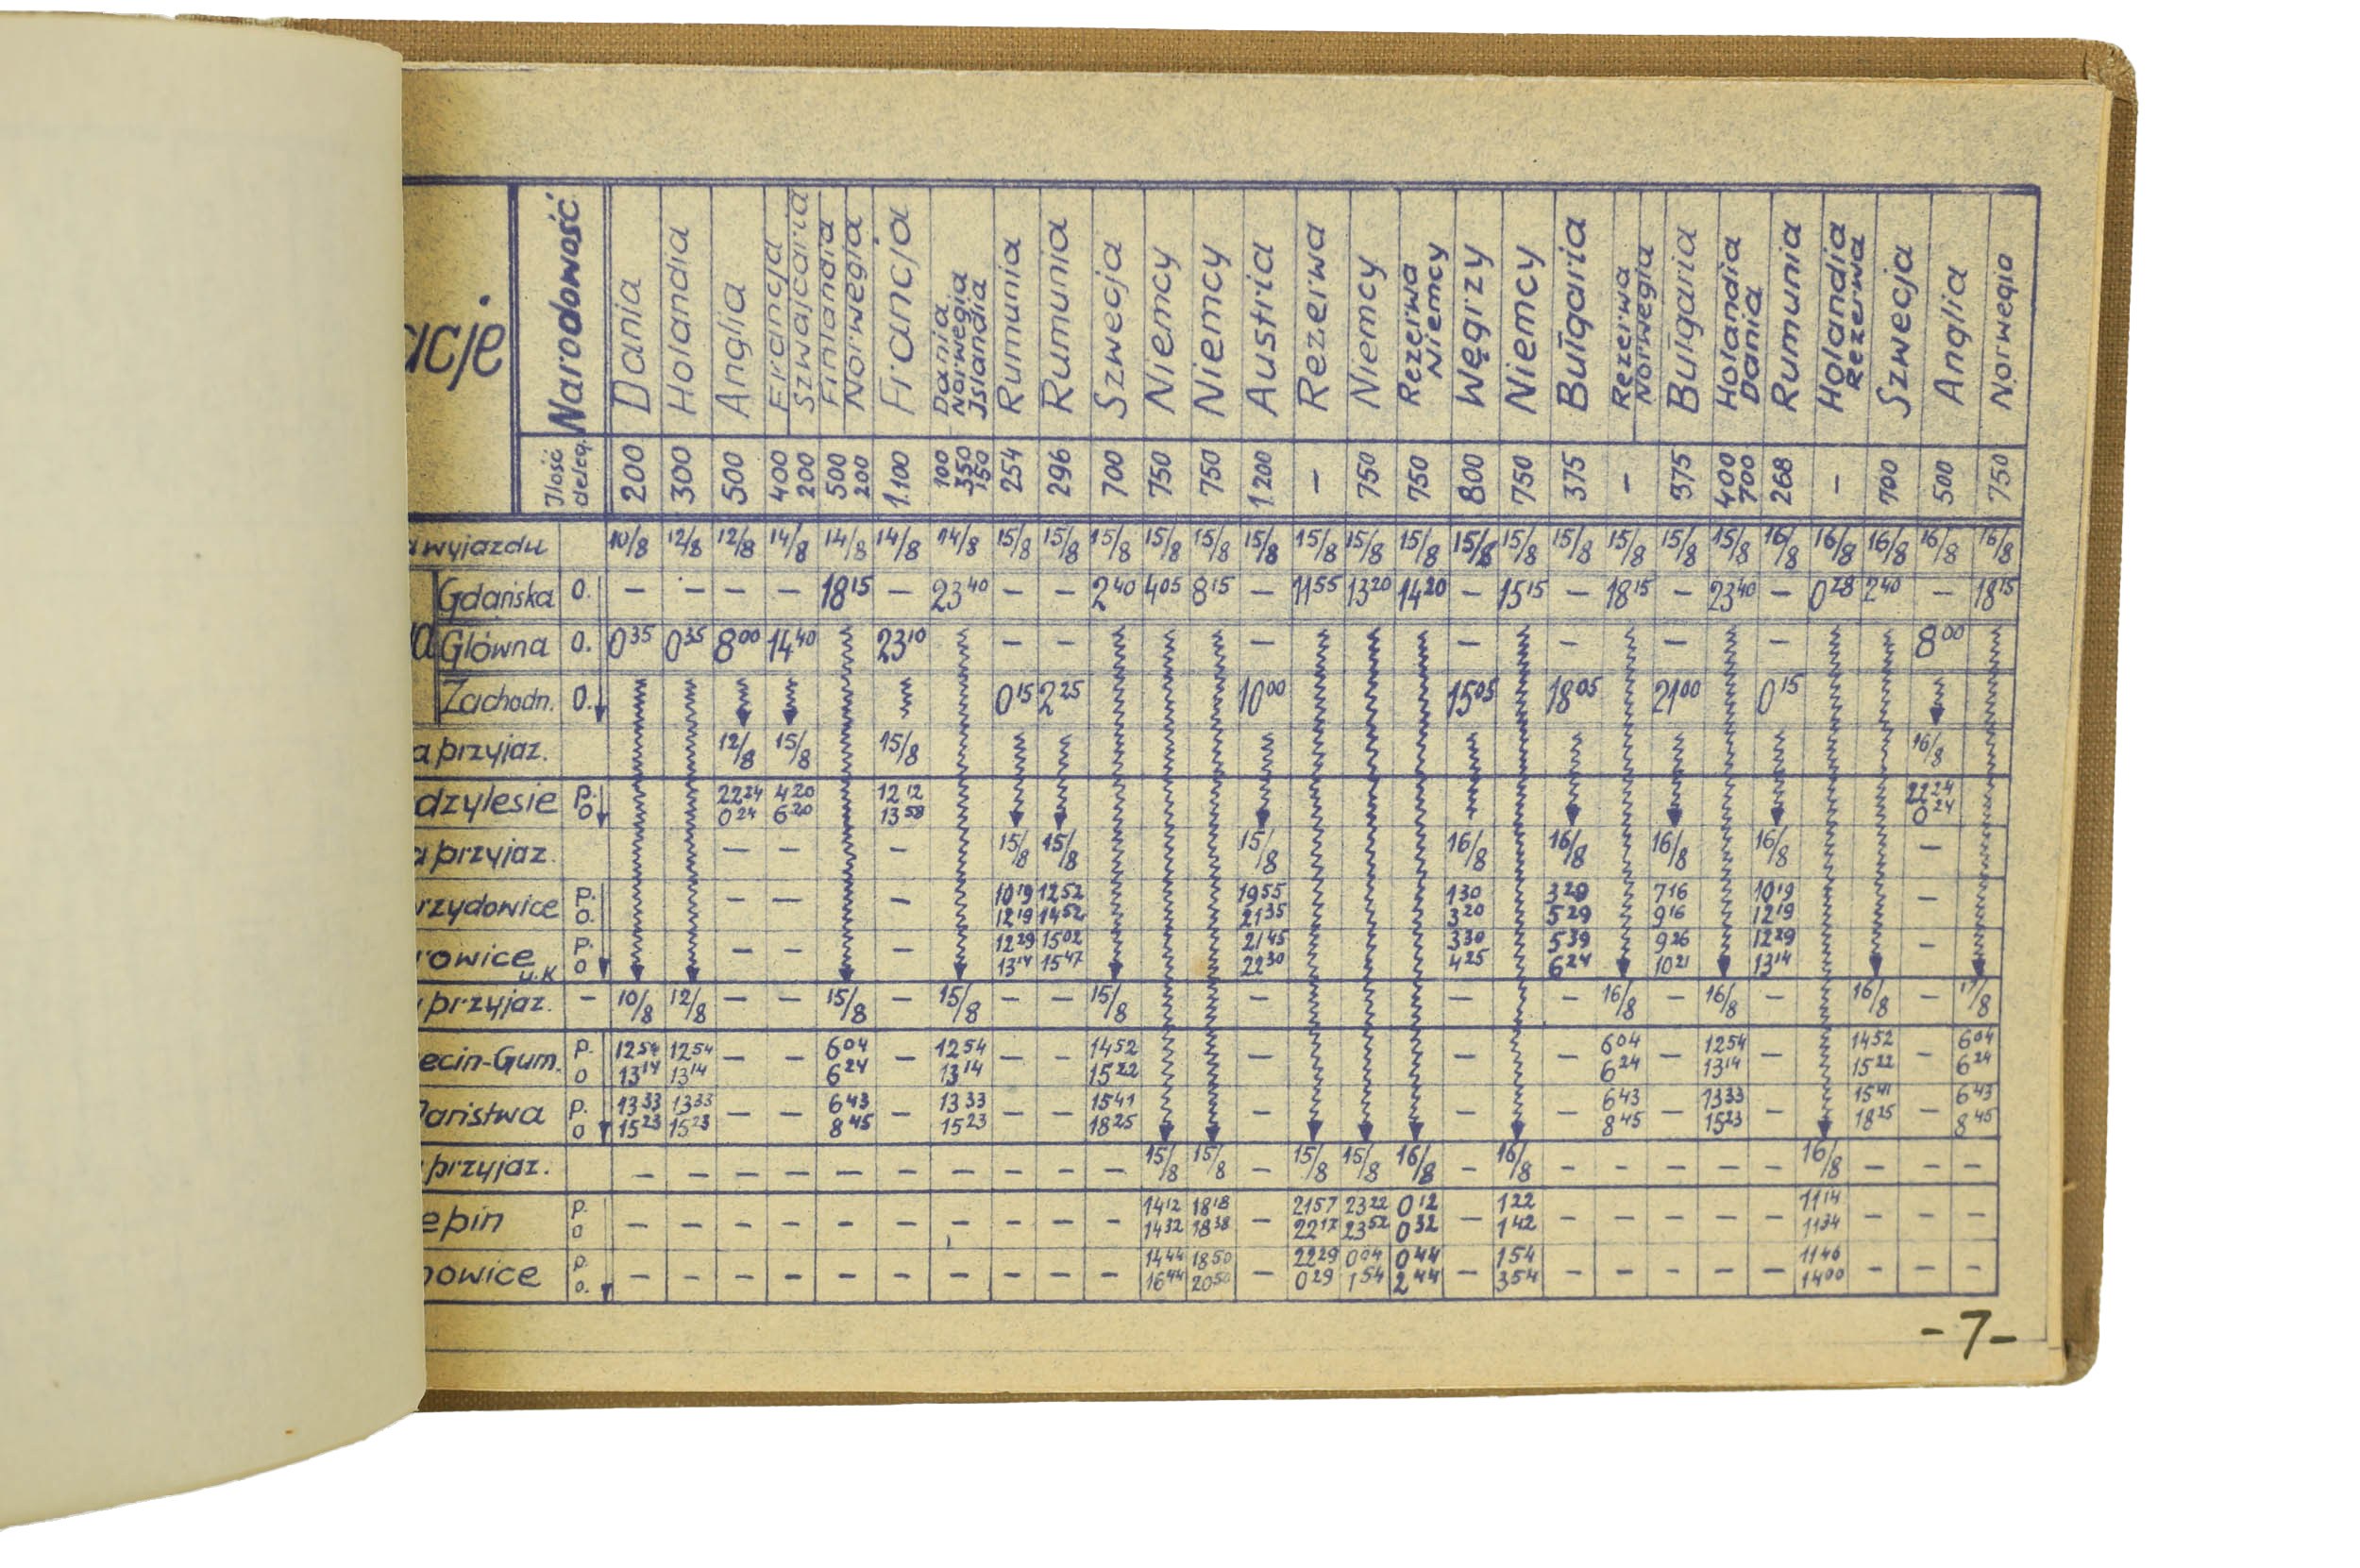 acje
Narodowość Dania Holandia Anglia Francja Szwajcaria Finlandia Norwegia Francja Dania Norwegia Jslandia Rumunia Rumunia Szwecja Niemcy Niemcy Austria Rezerwa Niemcy Rezerwa Niemcy Węgrzy Niemcy Bułgaria Rezerwa Norwegia Bułgaria Holandia Dania Rumunia Holandia Rezerwa Szwecja Anglia Norwegia
Jlość deleg. 200 300 500 400 200 500 200 1.100 100 350 150 254 296 700 750 750 1.200 - 750 750 800 750 375 - 375 400 700 268 - 700 500 750
wyjazdu 10/8 12/8 12/8 14/8 14/8 14/8 14/8 15/8 15/8 15/8 15/8 15/8 15/8 15/8 15/8 15/8 15/8 15/8 15/8 15/8 15/8 15/8 16/8 16/8 16/8 16/8 16/8
Gdańska O. - - - - 18 15 - 23 40 - - 2 40 4 05 8 15 - 11 55 13 20 14 20 - 15 15 - 18 15 - 23 40 - 0 28 2 40 - 18 15
a Główna O. 0 35 0 35 8 00 14 40 23 10 - - - - - - - 8 00
Zachodn. O. 0 15 2 25 10 00 15 05 18 05 21 00 0 15
a przyjaz. 12/8 15/8 15/8 16/8
dzylesie p. 22 24 4 20 12 12 22 24
o 0 24 6 20 13 58 0 24
a przyjaz. - - - 15/8 15/8 15/8 16/8 16/8 16/8 16/8 -
rzydowice p. - - - 10 19 12 52 19 55 1 30 3 29 7 16 10 19 -
o. 12 19 14 52 21 35 3 20 5 29 9 16 12 19
rowice p. - - - 12 29 15 02 21 45 3 30 5 39 9 26 12 29 -
u.K o 13 14 15 47 22 30 4 25 6 24 10 21 13 14
przyjaz. - 10/8 12/8 - - 15/8 - 15/8 - - 15/8 - - - 16/8 - 16/8 - 16/8 - 17/8
ecin-Gum. p. 12 54 12 54 - - 6 04 - 12 54 - - 14 52 - - - 6 04 - 12 54 - 14 52 - 6 04
o 13 14 13 14 6 24 13 14 15 22 6 24 13 14 15 22 6 24
Państwa p. 13 33 13 33 - - 6 43 - 13 33 - - 15 41 - - - 6 43 - 13 33 - 15 41 - 6 43
o 15 23 15 23 8 45 15 23 18 25 8 45 15 23 18 25 8 45
przyjaz. - - - - - - - - - - 15/8 15/8 - 15/8 15/8 16/8 - 16/8 - - - - - 16/8 - - -
epin p. - - - - - - - - - - 14 12 18 18 - 21 57 23 22 0 12 - 1 22 - - - - - 11 14 - - -
o 14 32 18 38 22 17 23 52 0 32 1 42 11 34
nowice p. - - - - - - - - - - 14 44 18 50 - 22 29 0 04 0 44 - 1 54 - - - - - 11 46 - - -
o. 16 44 20 50 0 29 1 54 2 44 3 54 14 00
-7-